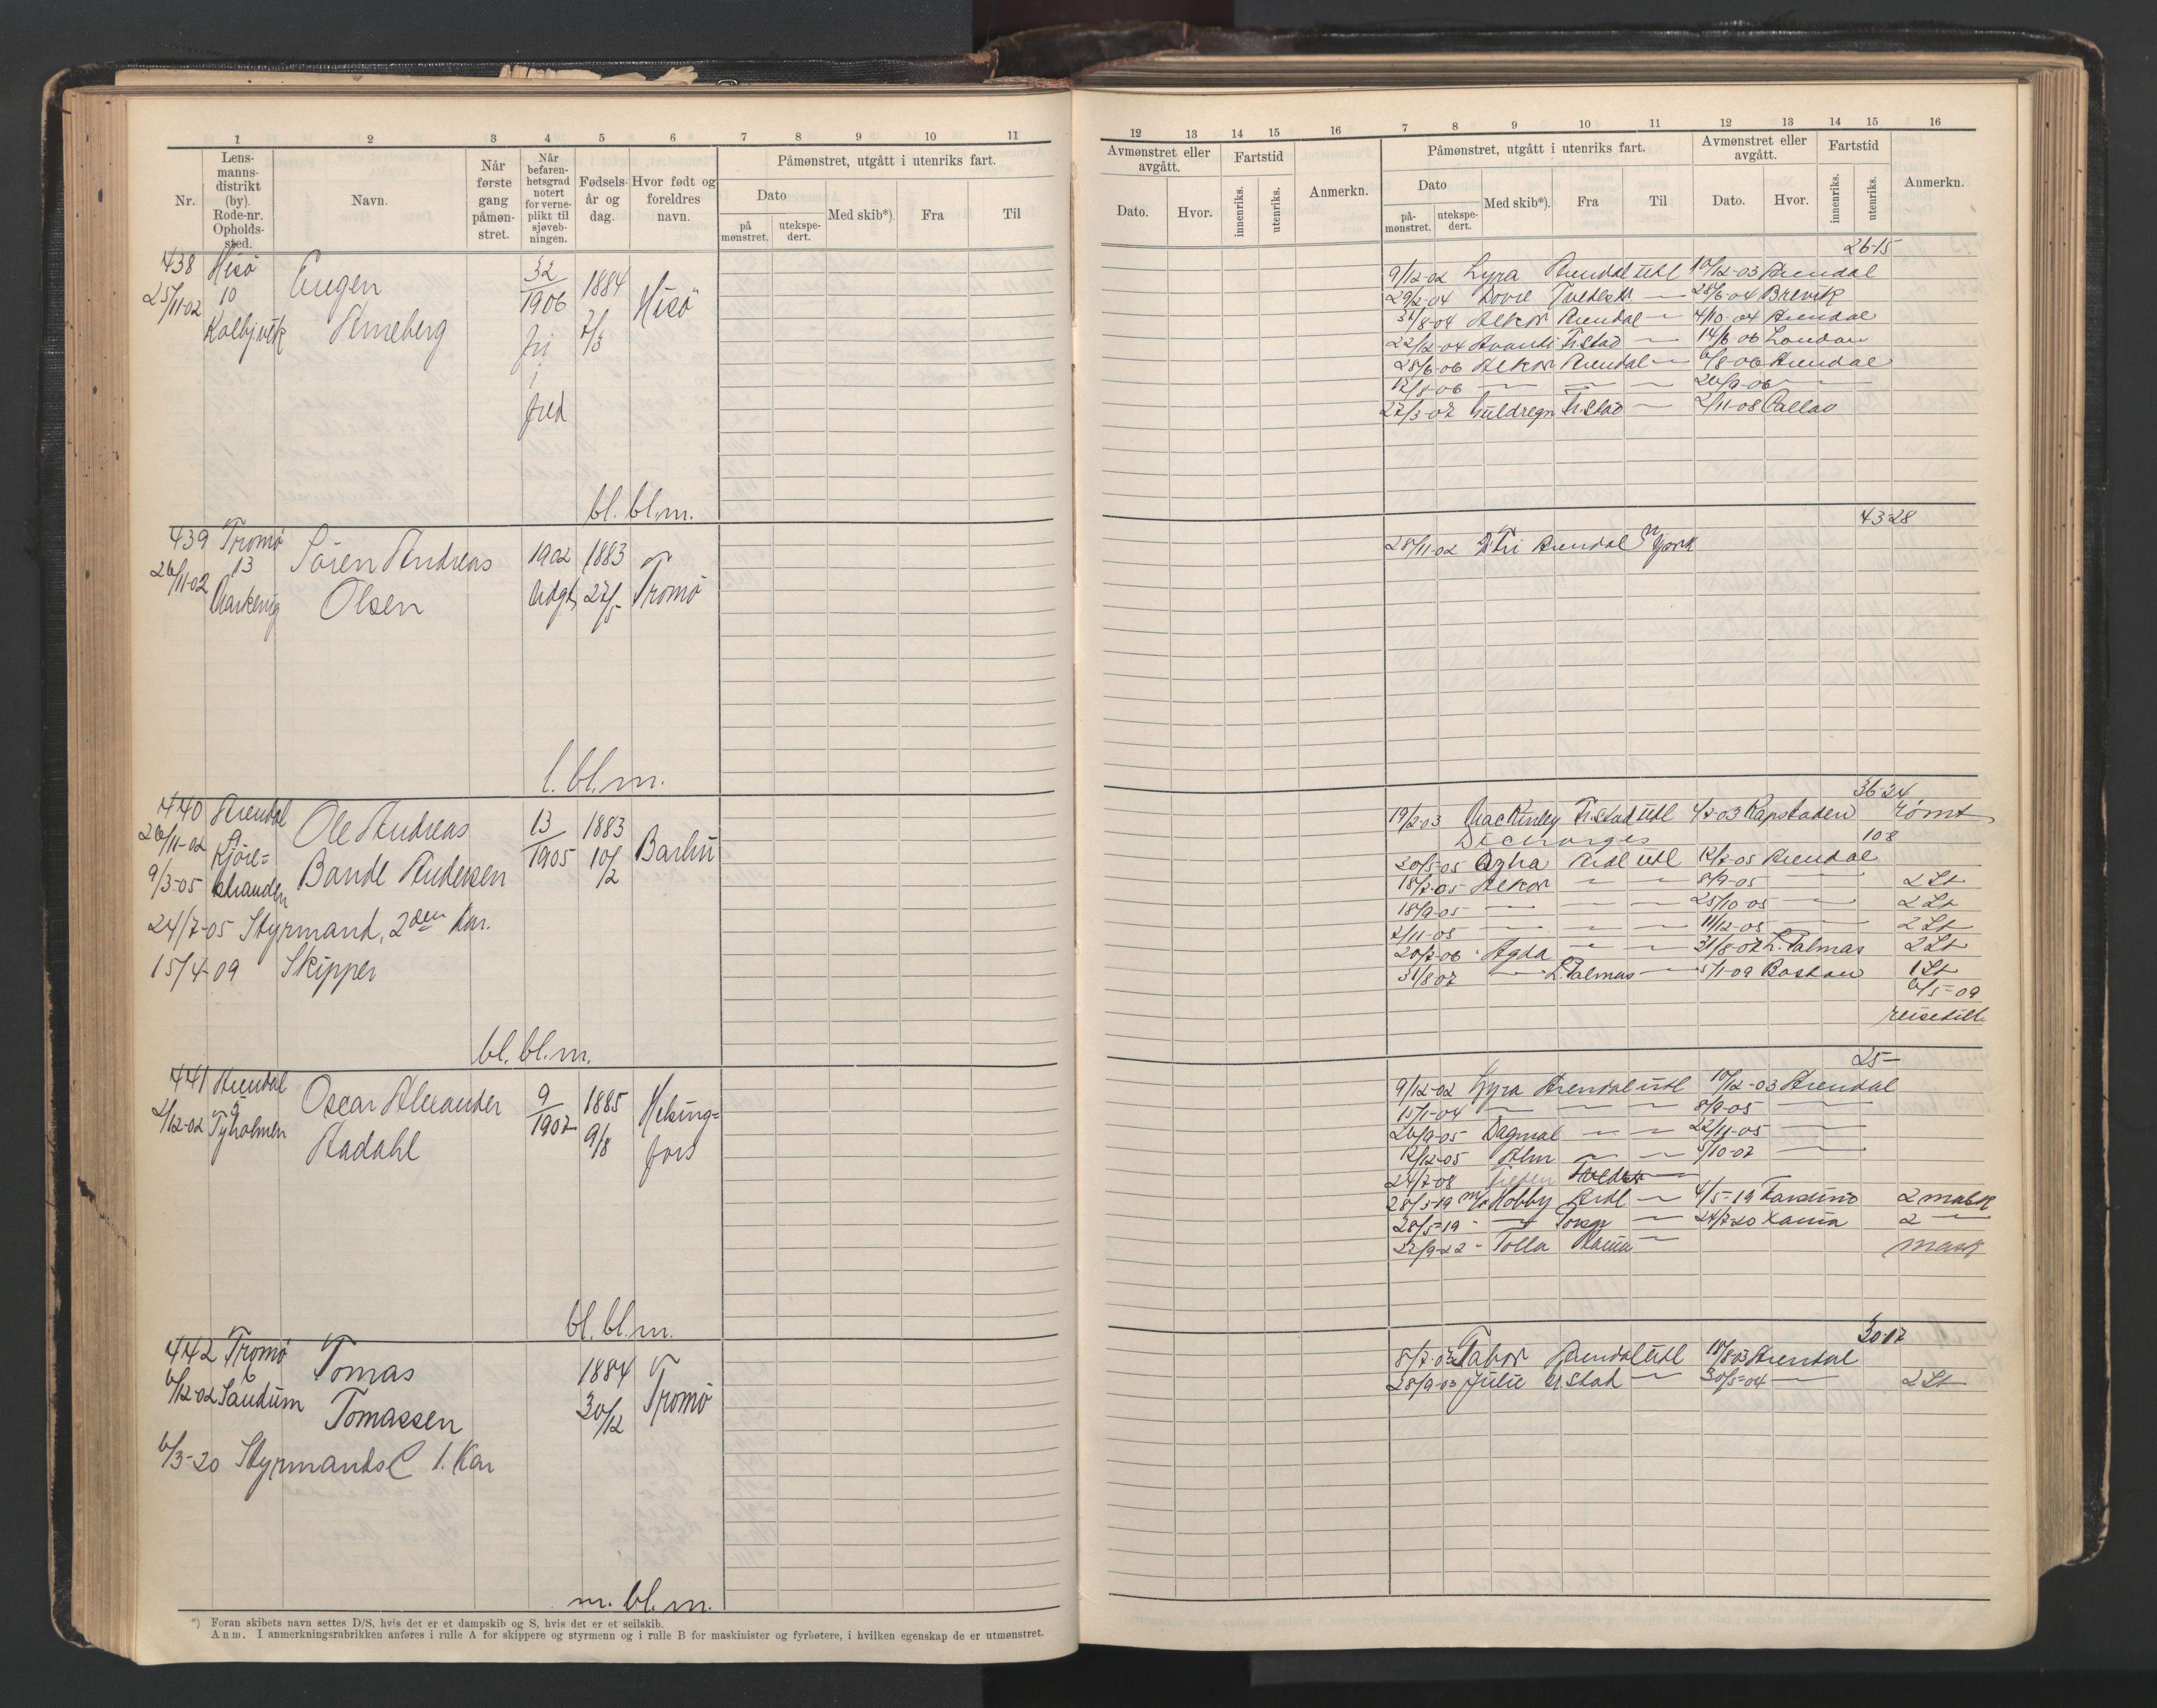 1 2 3 4 5 6 7 8 9 10 11
Nr.
Lens-
manns-
distrikt
(by).
Rode-nr.
Opholds-
sted.
Navn.
Når
første
gang
påmøn-
stret.
Når
befaren-
hetsgrad
notert
for verne-
plikt til
sjøveb-
ningen.
Fødsels-
år og
dag.
Hvor født og
foreldres
navn.
Påmønstret, utgått i utenriks fart.
Dato
på
mønstret.
utekspe-
dert.
Med skib*).
Fra
Til
438 Hisö
25/11-02 10
Kolbjvik
Eugen
Anneberg
32
1906
fri
i
fred
1884
7/3
Hisö
bl. bl. m.
439 Tromö
26/11-02 13
Sören Andreas
Olsen
1902
Udgt.
1883
27/5
Tromö
l. bl. m.
440 Arendal
26/11-02 9
9/3-05 Kjöre=
stranden
Ole Andreas
Bandl Andersen
13
1905
1883
10/2
Barbu
24/7-05 Styrmand, 2den Kar.
15/4-09 Skipper
bl. bl. m.
441 Arendal
2/12-02 5
Tyholmen
Oscar Alexander
Aadahl
9
1907
1885
9/8
Helsing=
fors
bl. bl. m.
442 Tromö
6/12-02 6
Sandum
Tomas
Tomassen
1884
30/12
Tromö
6/3-20 Styrmands C 1. Kar
m. bl. m.
*) Foran skibets navn settes D/S, hvis det er et dampskib og S, hvis det er et seilskib.
Anm. I anmerkningsrubrikken anføres i rulle A for skippere og styrmenn og i rulle B for maskinister og fyrbøtere, i hvilken egenskap de er utmønstret.
12 13 14 15 16 7 8 9 10 11 12 13 14 15 16
Avmønstret eller
avgått.
Dato.
Hvor.
Fartstid
innenriks.
utenriks.
Anmerkn.
Påmønstret, utgått i utenriks fart.
Dato
på-
mønstret.
utekspe-
dert.
Med skib*).
Fra
Til
Avmønstret eller
avgått.
Dato.
Hvor.
Fartstid
innenriks.
utenriks.
Anmerkn.
26-15
9/12-02 Lyra Arendal utl 10/12-03 Arendal
29/2-04 Dovre Tvedestr — 28/6-04 Brevik
31/8-04 Alkor Arendal — 4/10-04 Arendal
22/12-04 Avanti Fr.stad — 14/6-06 London
28/6-06 Alkor Arendal — 6/8-06 Arendal
13/8-06 — — — 20/9-06 —
27/3-07 Guldregn Fr.stad — 2/11-08 Callao
43-28
28/11-02 Fri Arendal N york
36-24
19/2-03 MacKinley Fr.stad utl 4/7-03 Kapstaden römt
Discharges 108
30/5-05 Agda Ardl utl 12/7-05 Arendal
18/7-05 Alkor — — 8/9-05 — 2 St
18/9-05 — — — 25/10-05 — 2 St
2/11-05 — — — 11/12-05 — 2 St
20/7-06 Agda — — 31/8-07 L. Palmas 2 St
31/8 07 — L. Palmas — 5/1-09 Boston 1 St
6/5-09
25-
9/12-02 Lyra Arendal utl 10/12-03 Arendal
15/1-04 — — — 8/9-05 —
26/9-05 Dagmal — — 22/11-05 —
12/12-05 Alm — — 5/10-07 —
24/7-08
28/3-19 m/s Hobby Ardl — 4/5-19 2 mask
28/5-19 — — 24/7-20 2 —
22/9-22 - Tolla — mask
30-17
8/7-03 Tabor Arendal utl 18/8 03 Arendal
28/9-03 Julie Fr.stad — 30/5-04 — 2 St